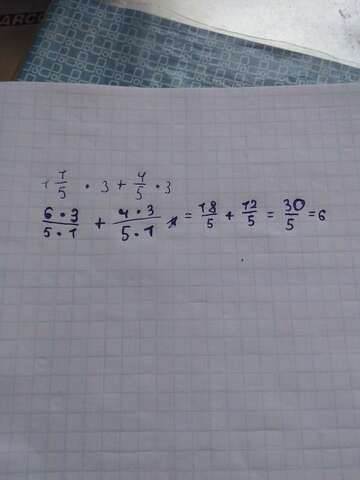 1 1/5 · 3 + 4/5 · 3
6·3/5·1 + 4·3/5·1 = 18/5 + 12/5 = 30/5 = 6